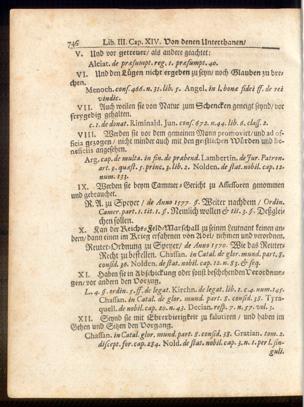 736 Lib. III. Cap. XIV. Von denen Unterthanen/
V. Und vor getreuer/ als andere geachtet:
Alciat. de præsumpt. reg. 1. præsumpt. 40.
VI. Und den Lügen nicht ergeben zu seyn/ noch Glauben zu bre-
chen.
Menoch. cons. 466. n. 31. lib. 5. Angel. in l. bonæ fidei ff. de rei
vindic.
VII. Auch weilen sie von Natur zum Schencken geneigt seynd/ vor
freygebig gehalten.
c. 1. de donat. Riminald. Jun. cons. 672. n. 44. lib. 6. class. 2.
VIII. Werden sie vor dem gemeinen Mann promovirt/ und ad of-
ficia gezogen/ nicht minder auch mit den geistlichen Würden und be-
neficiis angesehen.
Arg. cap. de multa. in fin. de præbend. Lambertin. de Jur. Patron.
art. 3. quæst. 7. princ. 3. lib. 2. Nolden. de stat. nobil. cap. 12.
num. 133.
IX. Werden sie beym Cammer-Gericht zu Assessoren genommen
und gebrauchet.
R. A. zu Speyer/ de Anno 1577. §. Weiter nachdem/ Ordin.
Camer. part. 1. tit. 1. §. Nemlich wollen & tit. 3. §. Desglei-
chen sollen.
X. Kan der Reichs-Feld-Marschall zu seinem Leutnant keinen an-
dern/ dann einen im Krieg erfahrnen von Adel/ nehmen und verordnen.
Reuter-Ordnung zu Speyer/ de Anno 1570. Wie das Reitter-
Recht zu bestellen. Chassan. in Catal. de glor. mund. part. 8.
consid. 36. Nolden. de stat. nobil. cap. 12. n. 85. & seq.
XI. Haben sie in Abschickung oder sonst beschehenden Verordnun-
gen/ vor andern den Vorzug.
L. 4. §. ordin. 5. ff. de legat. Kirchn. de legat. lib. 2. c. 4. num. 145.
Chassan. in Catal. de glor. mund. part. 8. consid. 35. Tyra-
quell. de nobil. cap. 20. n. 43. Decian. resp. 7. n. 57. vol. 3.
XII. Seynd sie mit Ehrerbietigkeit zu salutiren/ und haben im
Gehen und Sitzen den Vorgang.
Chassan. in Catal. glor. mund. part. 8. consid. 38. Gratian. tom. 2.
discept. for. cap. 284. Nold. de stat. nobil. cap. 3. n. 1. per l. sin-
guli.